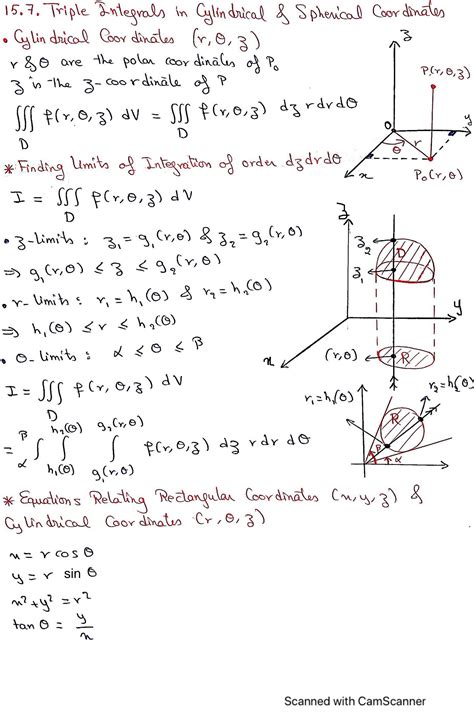 15.7. Triple Integrals in Cylindrical & Spherical Coordinates
• Cylindrical Coordinates (r, θ, z)
r & θ are the polar coordinates of P₀
z is the z-coordinate of P
∭_D f(r, θ, z) dV = ∭_D f(r, θ, z) dz r dr dθ
z
P(r, θ, z)
O
y
θ
r
x
P₀(r, θ)
* Finding Limits of Integration of order dz dr dθ
I = ∭_D f(r, θ, z) dV
• z-limits : z₁ = g₁(r, θ) & z₂ = g₂(r, θ)
⇒ g₁(r, θ) ≤ z ≤ g₂(r, θ)
• r-limits : r₁ = h₁(θ) & r₂ = h₂(θ)
⇒ h₁(θ) ≤ r ≤ h₂(θ)
• θ-limits : α ≤ θ ≤ β
z
z₂
D
z₁
y
x
(r, θ)
R
I = ∭_D f(r, θ, z) dV
= ∫_α^β ∫_{h₁(θ)}^{h₂(θ)} ∫_{g₁(r, θ)}^{g₂(r, θ)} f(r, θ, z) dz r dr dθ
r₁ = h₁(θ)
r₂ = h₂(θ)
R
β
α
* Equations Relating Rectangular Coordinates (x, y, z) &
Cylindrical Coordinates (r, θ, z)
x = r cos θ
y = r sin θ
x² + y² = r²
tan θ = y/x
Scanned with CamScanner